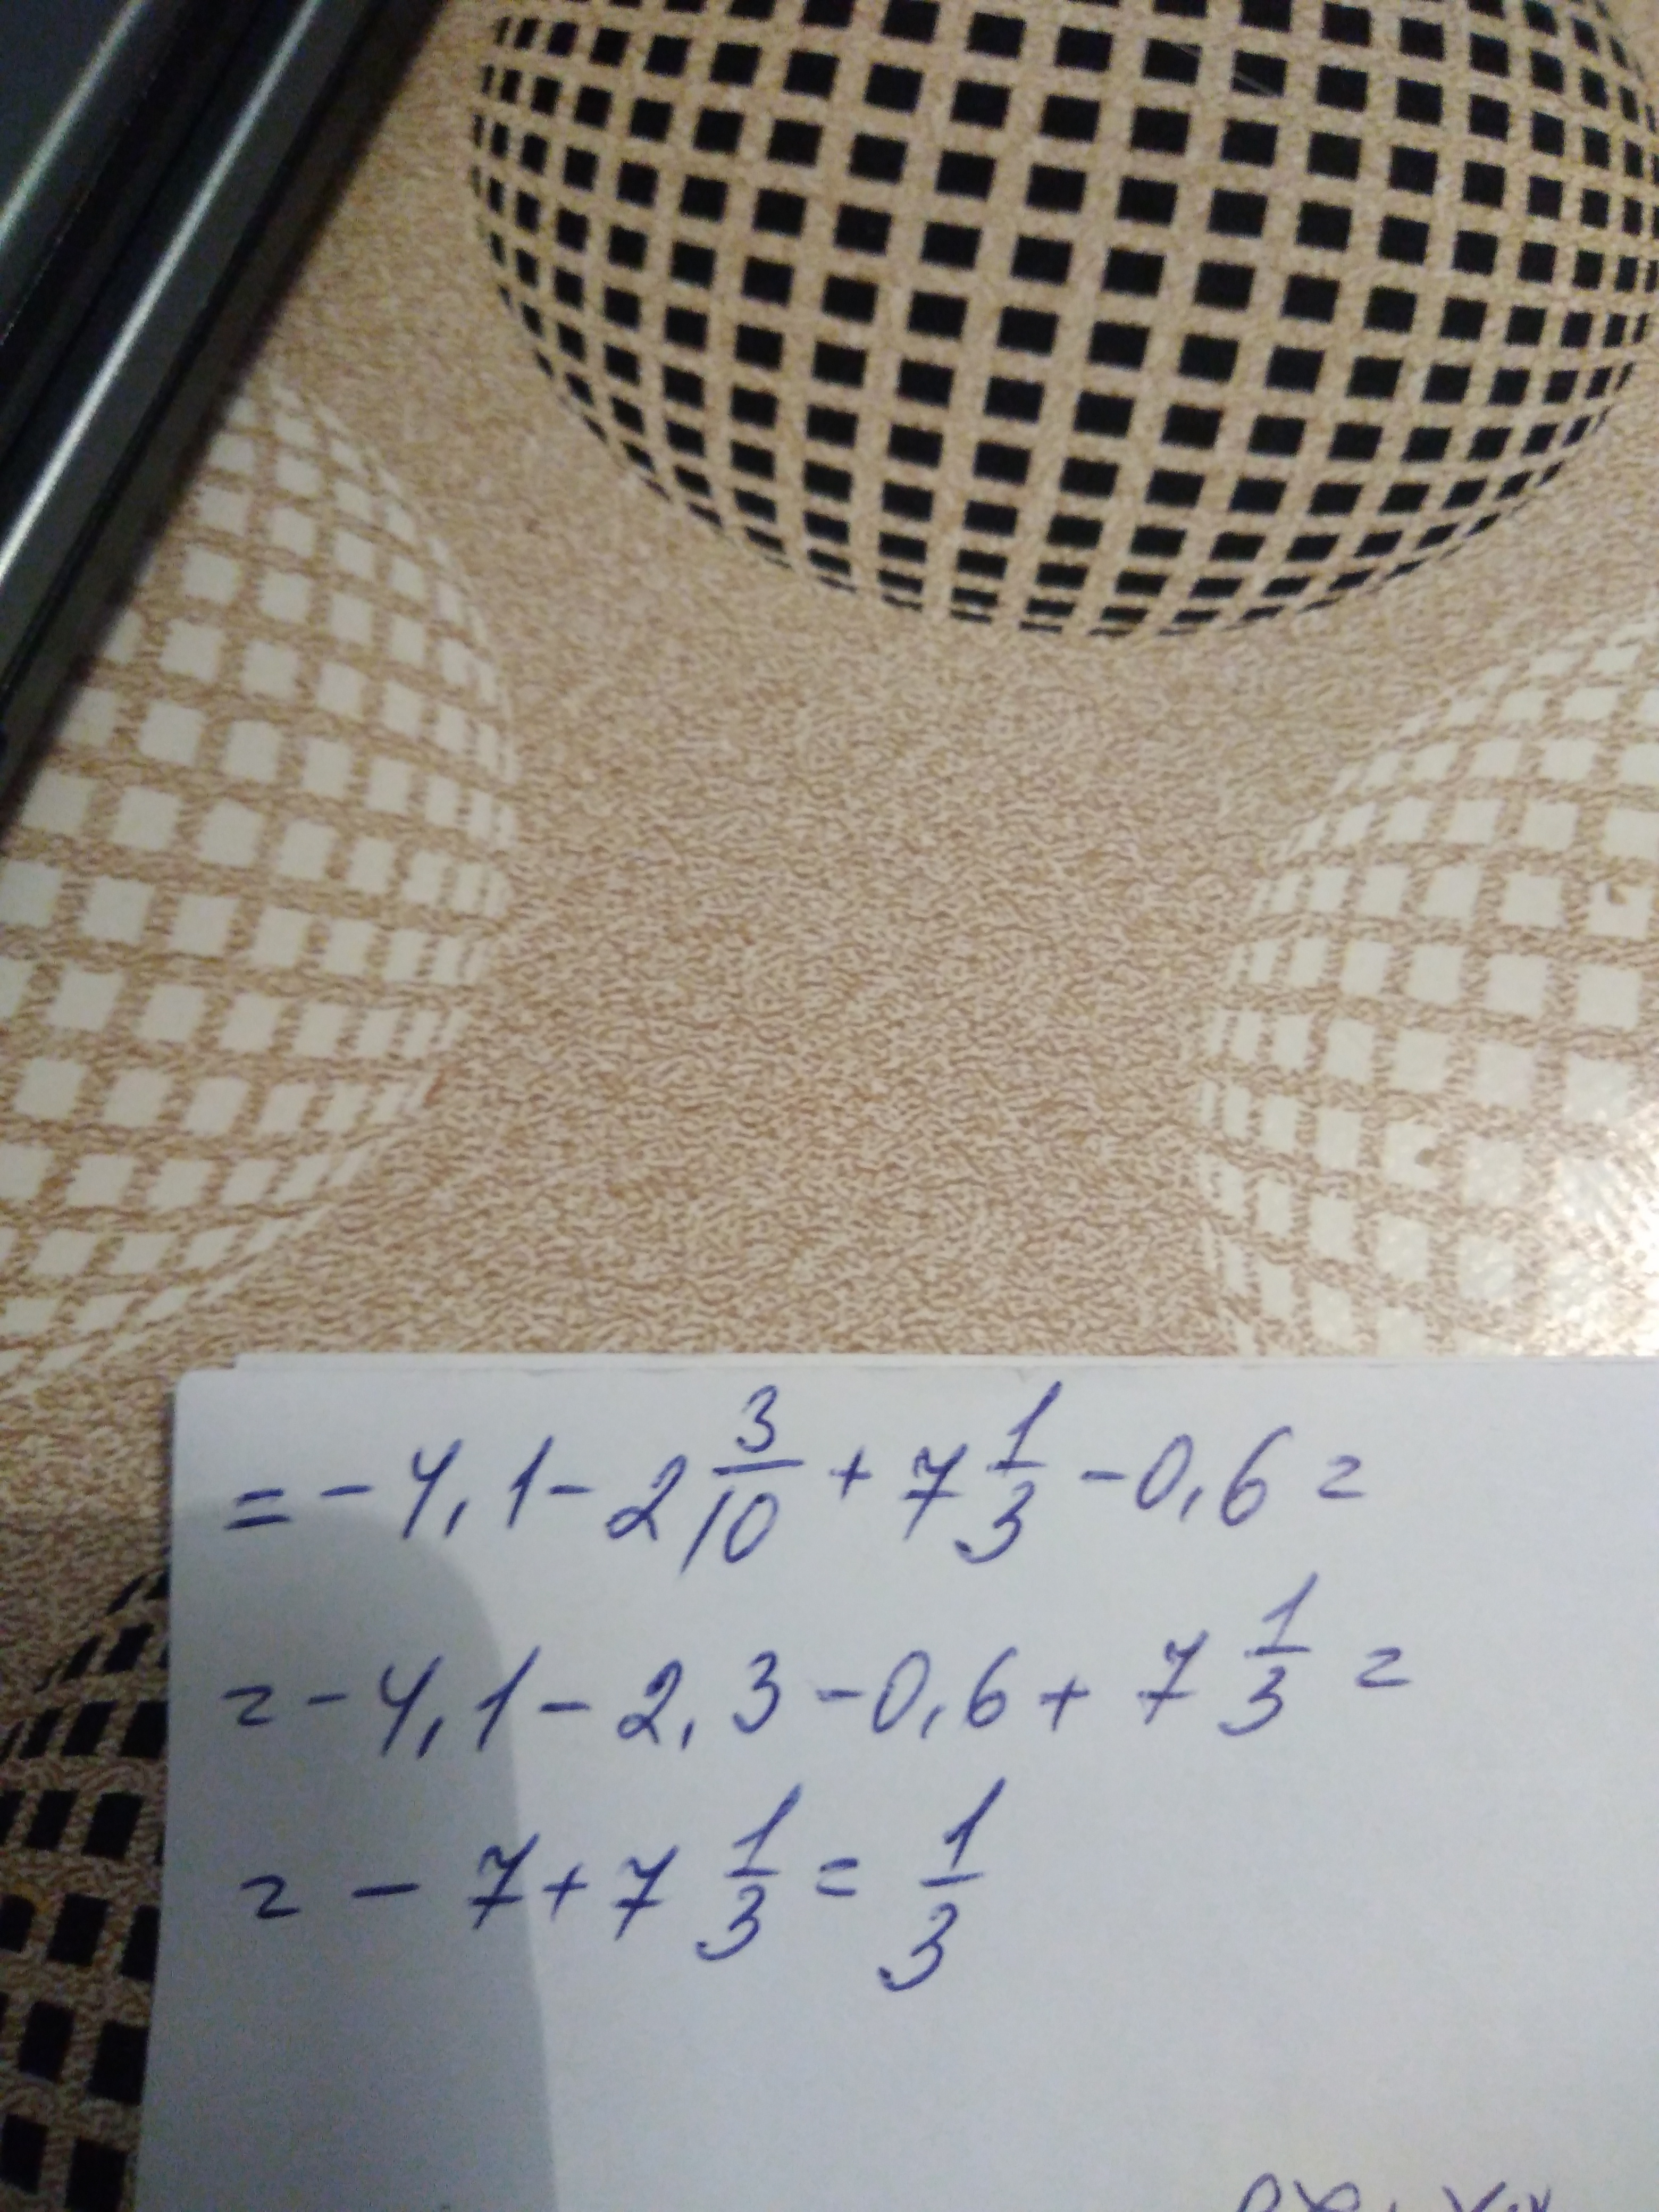 = - 4,1 - 2 3/10 + 7 1/3 - 0,6 =
= - 4,1 - 2,3 - 0,6 + 7 1/3 =
= - 7 + 7 1/3 = 1/3